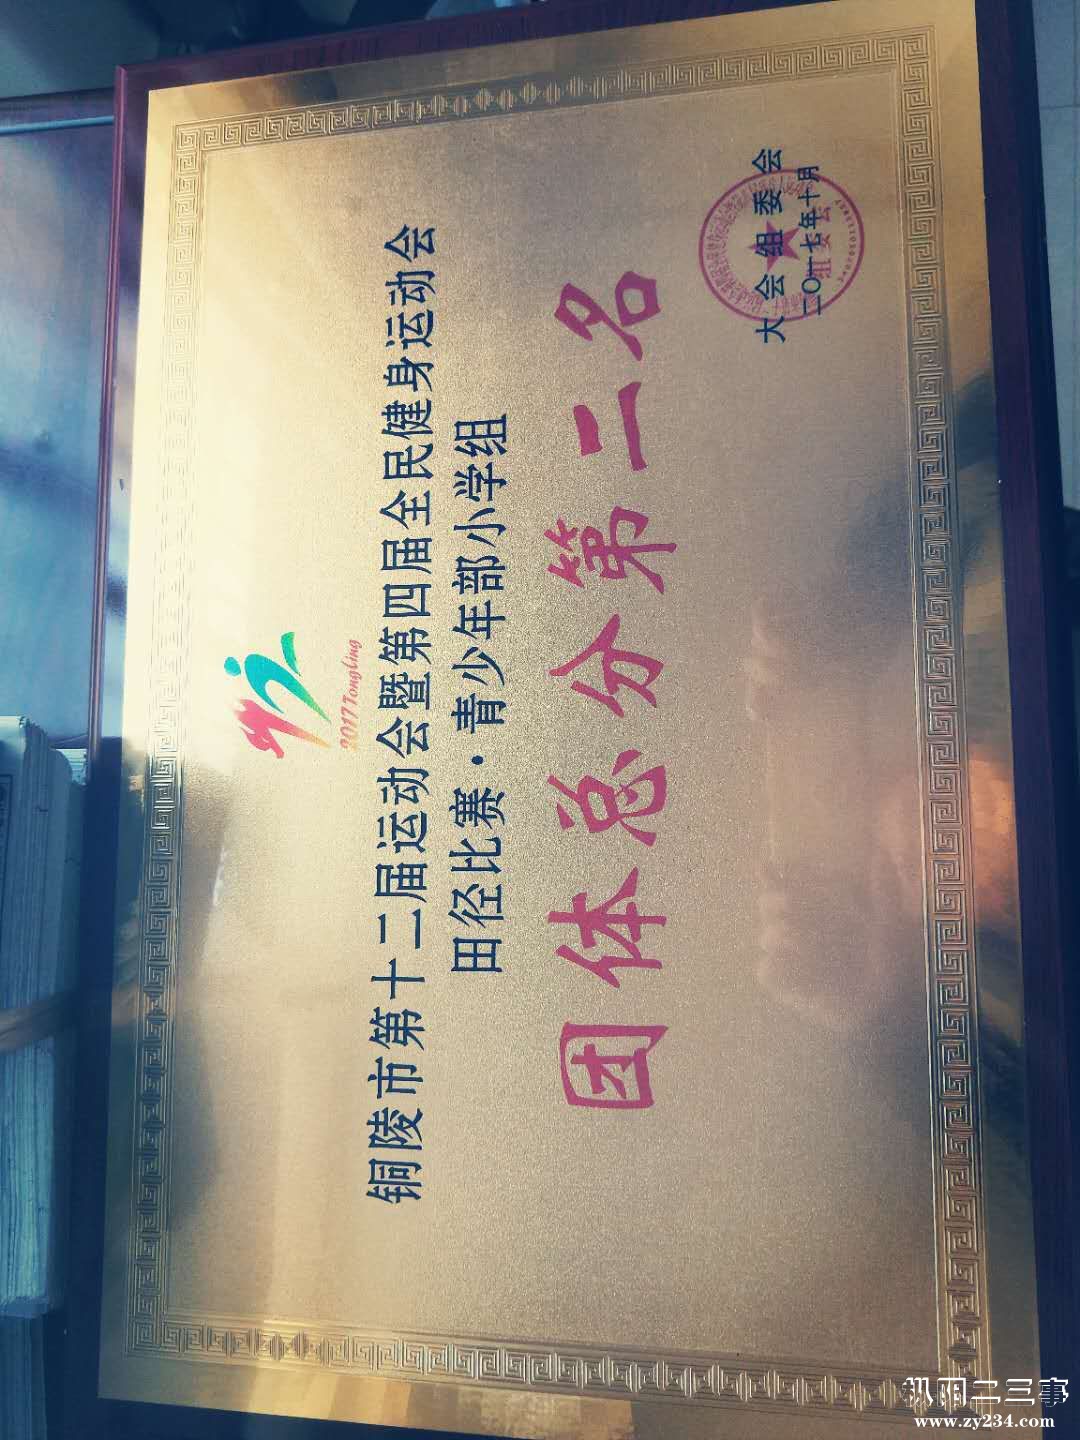 2017 Tongling
铜陵市第十二届运动会暨第四届全民健身运动会
田径比赛·青少年部小学组
团体总分第二名
大会组委会
二〇一七年十月
组委会
枞阳二三事
www.zy234.com